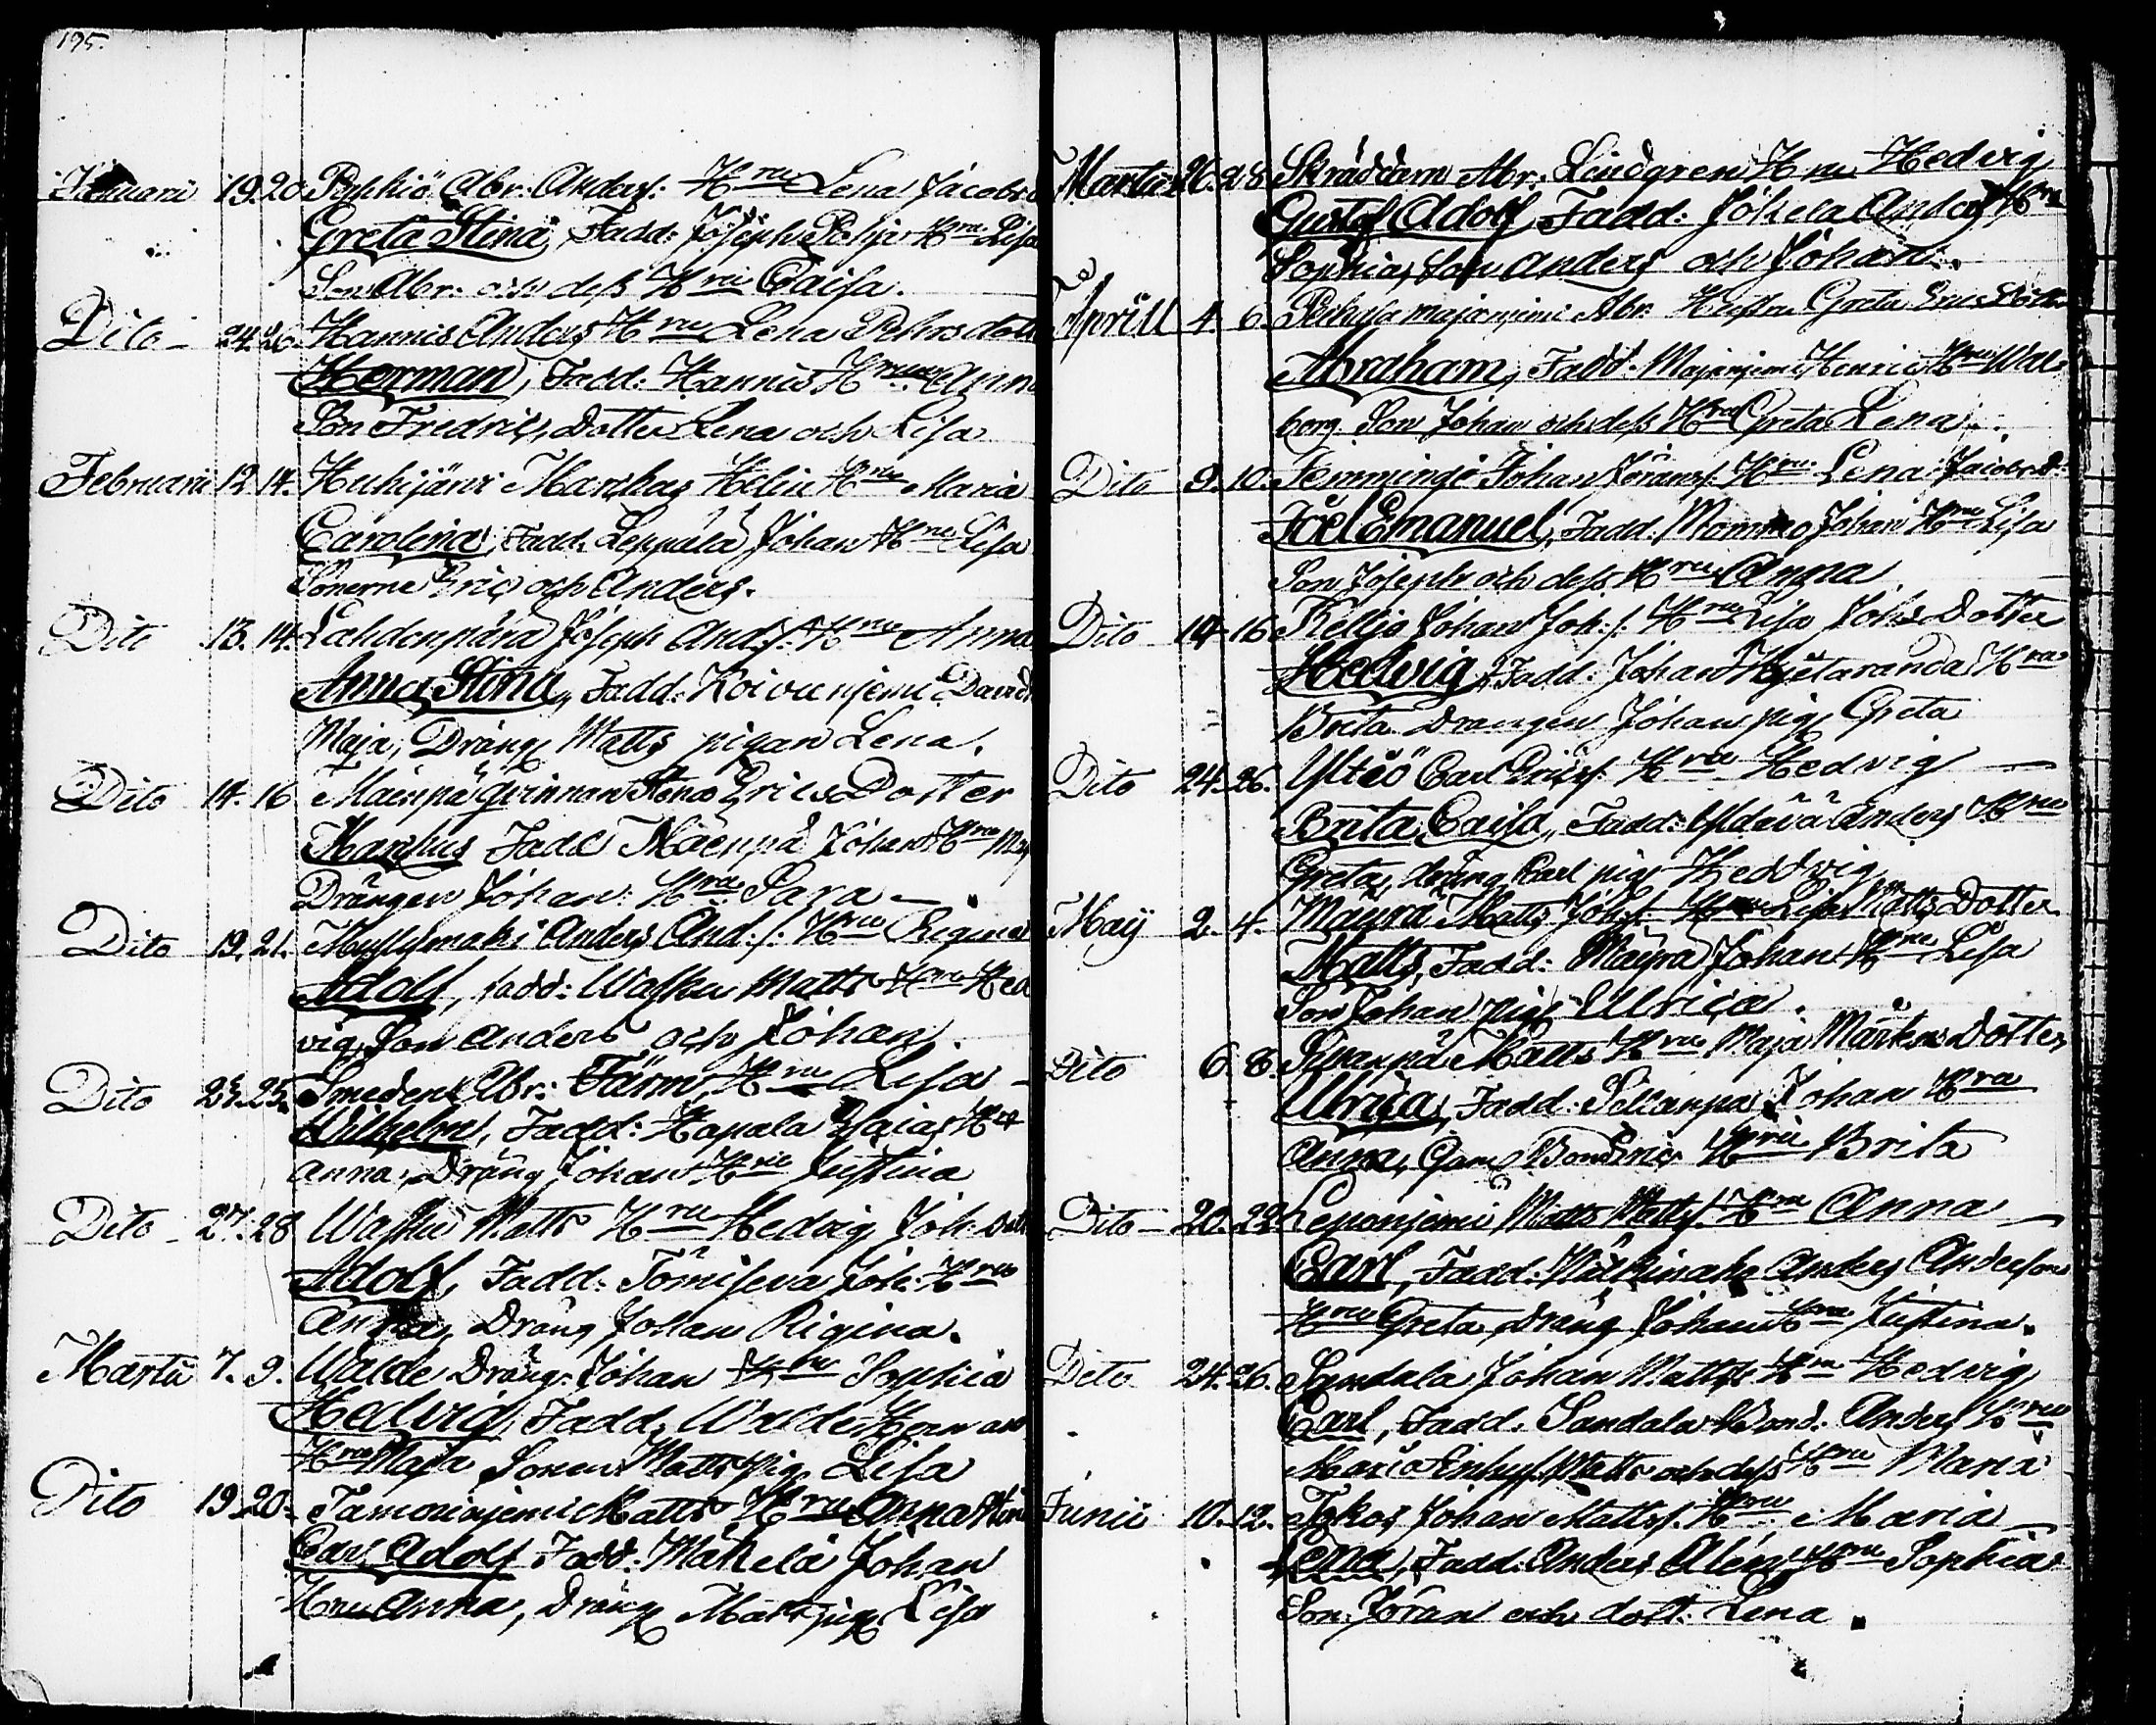 195.
Januarii 19. 20. Pyhkiö Abr: Anders: Hru Lena Jacobs d
Greta Stina, Fadd: Joseph Pohja Hru Lisa
Son Abr: och dess Hru Caisa.
Dito - 24. 26. Hannis Anders Hru Lena Pehrs dott
Herman, Fadd: Hannus Hru Ann
Son Fredric, Dotter Lena och Lisa
Februarii 12. 14. Huhijänr Markus Helin Hru Maria
Carolina, Fadd. Leppälä Johan Hru Lisa
Sönerne Eric och Anders.
Dito 13. 14. Lahdenpära Joseph And:s: Hru Anna
Anna Stina, Fadd: Koivunjemi David
Maja, Dräng Matts pigan Lena.
Dito 14. 16 Mäenpä qvinnan Stina Erics Dotter
Markus Fadd Mäenpä Johan Hru Maj
Drängen Johan: Hru Sara -
Dito 19. 21. Myllymaki Anders And:s: Hru Regina
Adolf, fadd: Wasku Matts Hru Hed
vig, Son Anders och Johan.
Dito 23. 25. Smeden Abr: Färm, Hru Lisa -
Wilhelm, Fadd: Hapala Esaias Hru
Anna, Dräng Johan Hru Justina
Dito - 27. 28 Wasku Matts Hru Hedvig Joh: Dott
Adolf, Fadd: Tömiseva Joh: Hru
Anna, Dräng Johan Rigina.
Martii 7. 9. Walde Dräng Johan Hru Sophia
Hedvig, Fadd, Walde Herman
Hru Maja Sonen Matts pig. Lisa
Dito 19. 20. Tamounjemi Matts Hru Anna Stin
Carl Adolf Fadd: Mäkelä Johan
Hru Anna, Dräng Matts pig Lisa
Martii 26. 28. Skräddarn Abr: Lindgren Hru Hedvig
Gustaf Adolf, Fadd: Jokela Anders Hru
Sophia, Son Anders och Johan.
Aprill 4. 6. Majanjemi Abr. Hustru Greta Erics Dotter
Abraham, Fadd: Majanjemi Henric Hru Wal-
borg Son Johan och dess Hru Greta Lena.
Dito 9. 10. Femmingi Johan Jöranss: Hru Lena Jacobs d:
Joel Emanuel, Fadd: Mommo Johan Hru Lisa
Son Joseph och dess Hru Anna
Dito 14. 16 Kelljo Johan Joh:s: Hru Lisa Johs Dotter
Hedvig, Fadd: Johan Hjetaranda Hru
Brita Drängen Johan pig Greta
Dito 24. 26. Ylteö Carl Erics: Hru Hedvig -
Brita Caisa, Fadd: Yldävä Anders Hru
Greta, dräng Karl pig Hedvig
Maij 2. 4. Mäyrä Matts Johs: Hru Lisa Matts Dotter
Matts, Fadd: Mäyrä Johan Hru Lisa
Son Johan pig Ulrica.
Dito 6. 8. Silanpä Matts Hru Maja Mårtens Dotter
Ulrica, Fadd: Sillanpä Johan Hru
Anna, Gam Bond Eric Hru Brita
Dito - 20. 22. Leponjemi Matts Matts: Hru Anna -
Carl, Fadd: Anders Anderson
Hru Greta, Dräng Johan Hru Justina.
Dito 24. 26. Sandala Johan Matts: Hru Hedvig
Carl, Fadd: Sandala Bond: Anders Hru
Maria Matts och dess Hru Maria
Junii 10. 12. Iskos Johan Mattss: Hru Maria -
Lena, Fadd: Anders Alén, Hru Sophia
Son: Jöran och dott: Lena.